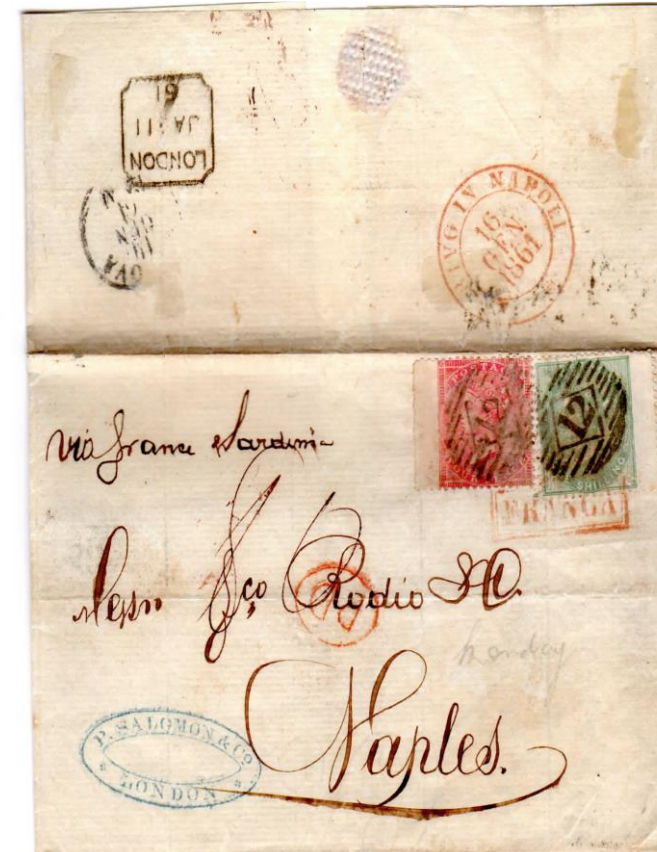 LONDON
JA 11
61
OVA
GEN
ARRIVO IN NAPOLI
16
GEN
1861
12
12
SHILLING
FRANCA
Via france & Sardinia
Messrs Fco Rodio & C.
PD
Naples.
P. SALOMON & CO
LONDON